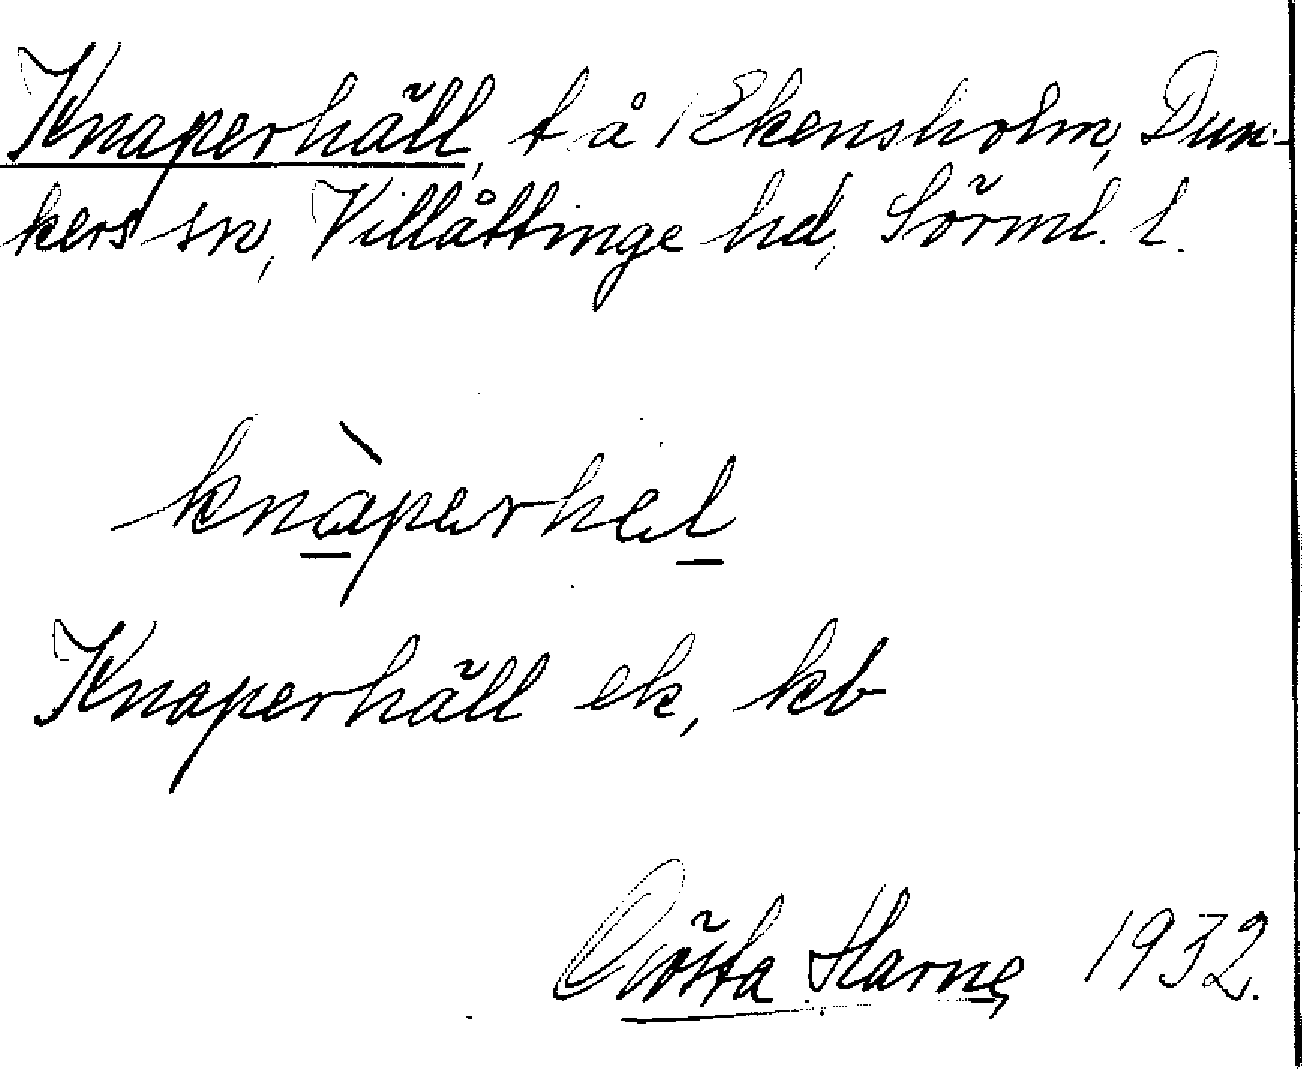 Knaperhäll, t å Ekensholm, Dun-
kers sn, Villåttinge hd, Sörml. l.
knàperhel
Knaperhäll ek, kb
Gösta Harne 1932.